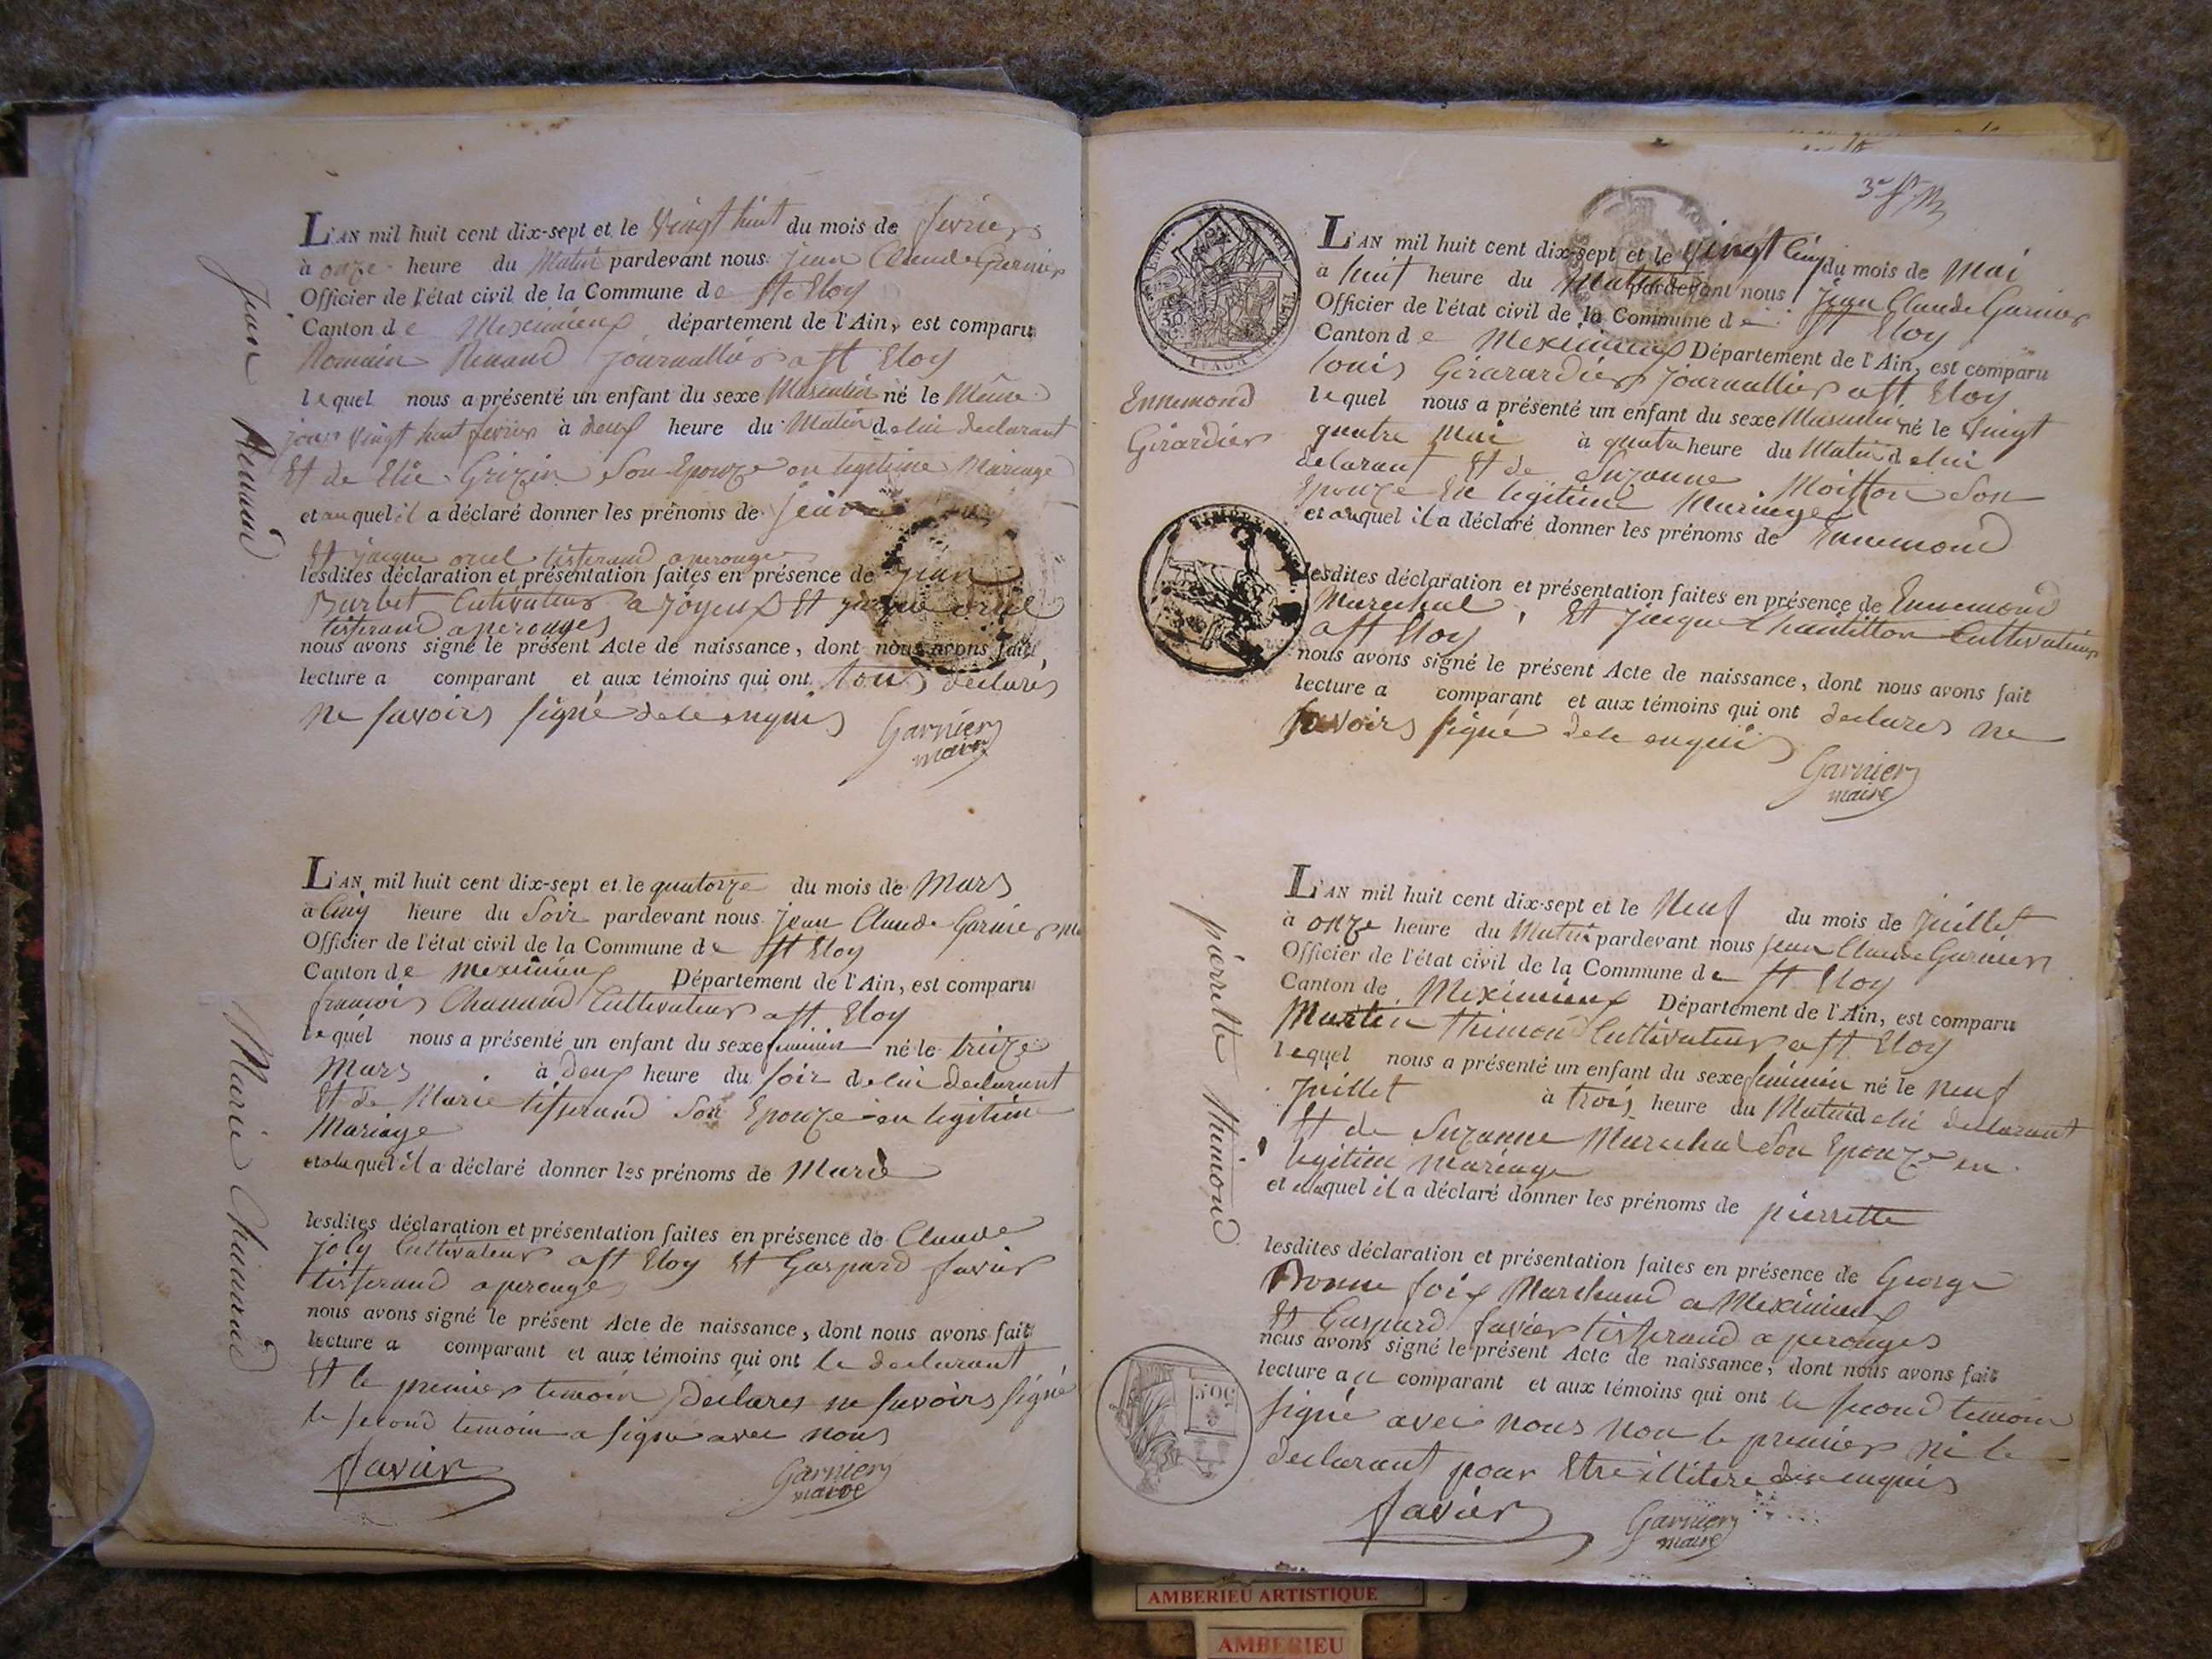 Jean Renaud
L'AN mil huit cent dix-sept et le vingt huit du mois de fevrier
à onze heure du Matin pardevant nous jean Claude Garnier
Officier de l'état civil de la Commune de St Eloy
Canton de Meximieux département de l'Ain, est comparu
Romain Renaud journallier a St Eloy
lequel nous a présenté un enfant du sexe Masculin né le Même
jour vingt huit fevrier à deux heure du Matin de lui declarant
Et de Grizin Son Epouze en legitime Mariage
et auquel il a déclaré donner les prénoms de jean
Et jacque oriel tisserand a perouge
lesdites déclaration et présentation faites en présence de jean
Burbet Cutivateur a joyeux Et jacque oriel
tisserand a perouges
nous avons signé le présent Acte de naissance, dont nous avons fait
lecture a comparant et aux témoins qui ont tous declarés
Ne savoirs signé de ce enquis
Garnier
maire
Marie Chanaud
L'AN mil huit cent dix-sept et le quatorze du mois de Mars
à Cinq heure du Soir pardevant nous jean Claude Garnier
Officier de l'état civil de la Commune de St Eloy
Canton de Meximieux Département de l'Ain, est comparu
francois Chanaud Cultivateur a St Eloy
lequel nous a présenté un enfant du sexe feminin né le treize
Mars à deux heure du soir de lui declarant
Et de Marie tisserand Son Epouze en legitime
Mariage
et auquel il a déclaré donner les prénoms de Marie
lesdites déclaration et présentation faites en présence de Claude
joly Cultivateur a St Eloy Et Gaspard favier
tisserand a perouges
nous avons signé le présent Acte de naissance, dont nous avons fait
lecture a comparant et aux témoins qui ont le declarant
Et le premier temoin declares ne savoirs signé
le second temoin a signé avec nous
favier
Garnier
maire
L'AN mil huit cent dix-sept et le vingt Cinq du mois de Mai
à huit heure du Matin pardevant nous Jean Claude Garnier
Officier de l'état civil de la Commune de St Eloy
Canton de Meximieux Département de l'Ain, est comparu
louis Girarardier journallier a St Eloy
Ennemond
Girardier
lequel nous a présenté un enfant du sexe Masculin né le vingt
quatre Mai à quatre heure du Matin de lui
delarant Et de Suzanne Moitton Son
Epouze En legitime Mariage
et auquel il a déclaré donner les prénoms de Ennemond
lesdites déclaration et présentation faites en présence de Ennemond
Marechal Et jacque Chantitton Cultivateurs
a St Eloy
nous avons signé le présent Acte de naissance, dont nous avons fait
lecture a comparant et aux témoins qui ont declares ne
savoirs signé de ce enquis
Garnier
maire
pierrette thimond
L'AN mil huit cent dix-sept et le Neuf du mois de juillet
à onze heure du Matin pardevant nous jean Claude Garnier
Officier de l'état civil de la Commune de St Eloy
Canton de Meximieux Département de l'Ain, est comparu
Martin thimond Cultivateur a St Eloy
lequel nous a présenté un enfant du sexe feminin né le neuf
juillet à trois heure du Matin de lui declarant
Et de Suzanne Marechal Son Epouze en
legitime Mariage
et auquel il a déclaré donner les prénoms de pierrette
lesdites déclaration et présentation faites en présence de George
Bonne foix Marchand a Meximieux
Et Gaspard favier tisserand a perouges
nous avons signé le présent Acte de naissance, dont nous avons fait
lecture au comparant et aux témoins qui ont le second temoin
signé avec nous non le premier ni le
declarant pour Etre illitere de ce enquis
favier
Garnier
maire
50 C
AMBERIEU ARTISTIQUE
AMBERIEU